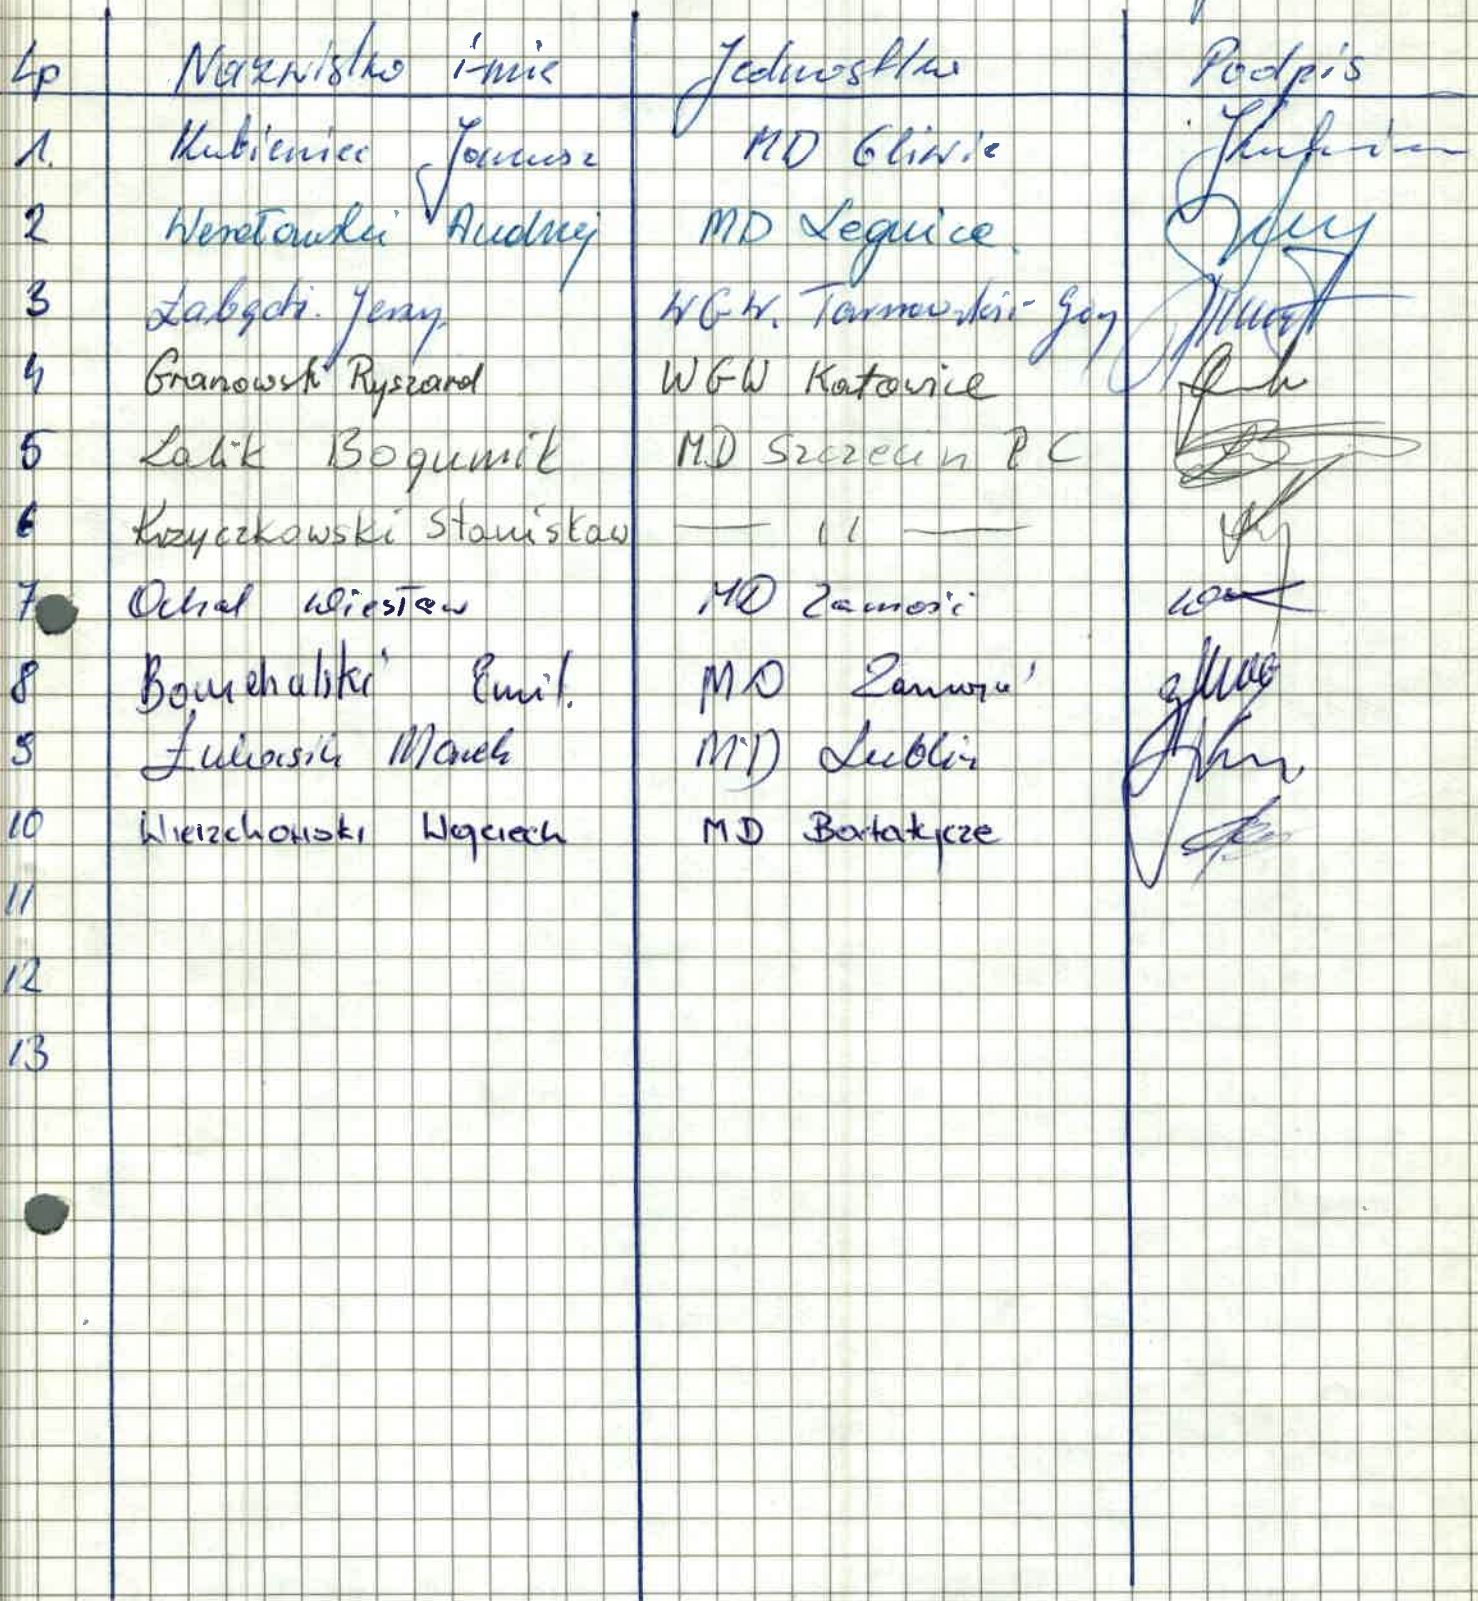 Lp Nazwisko imie Jednostka Podpis
1. Kubieniec Janusz MD Gliwic
2 Andrzej MD Legnica
3 Łabędź. Jerzy. WGW. Tarnowskie-Góry
4 Granowski Ryszard WGW Katowice
5 Lalik Bogumił MD Szczecin P C
6 Krzyczkowski Stanisław — 11 —
7 Ochal Wiesław MD Zamość
8 Emil. MD Zamość
9 Łukasik Marek MD Lublin
10 Wierzchowski Wojciech MD Bartatycze
11
12
13